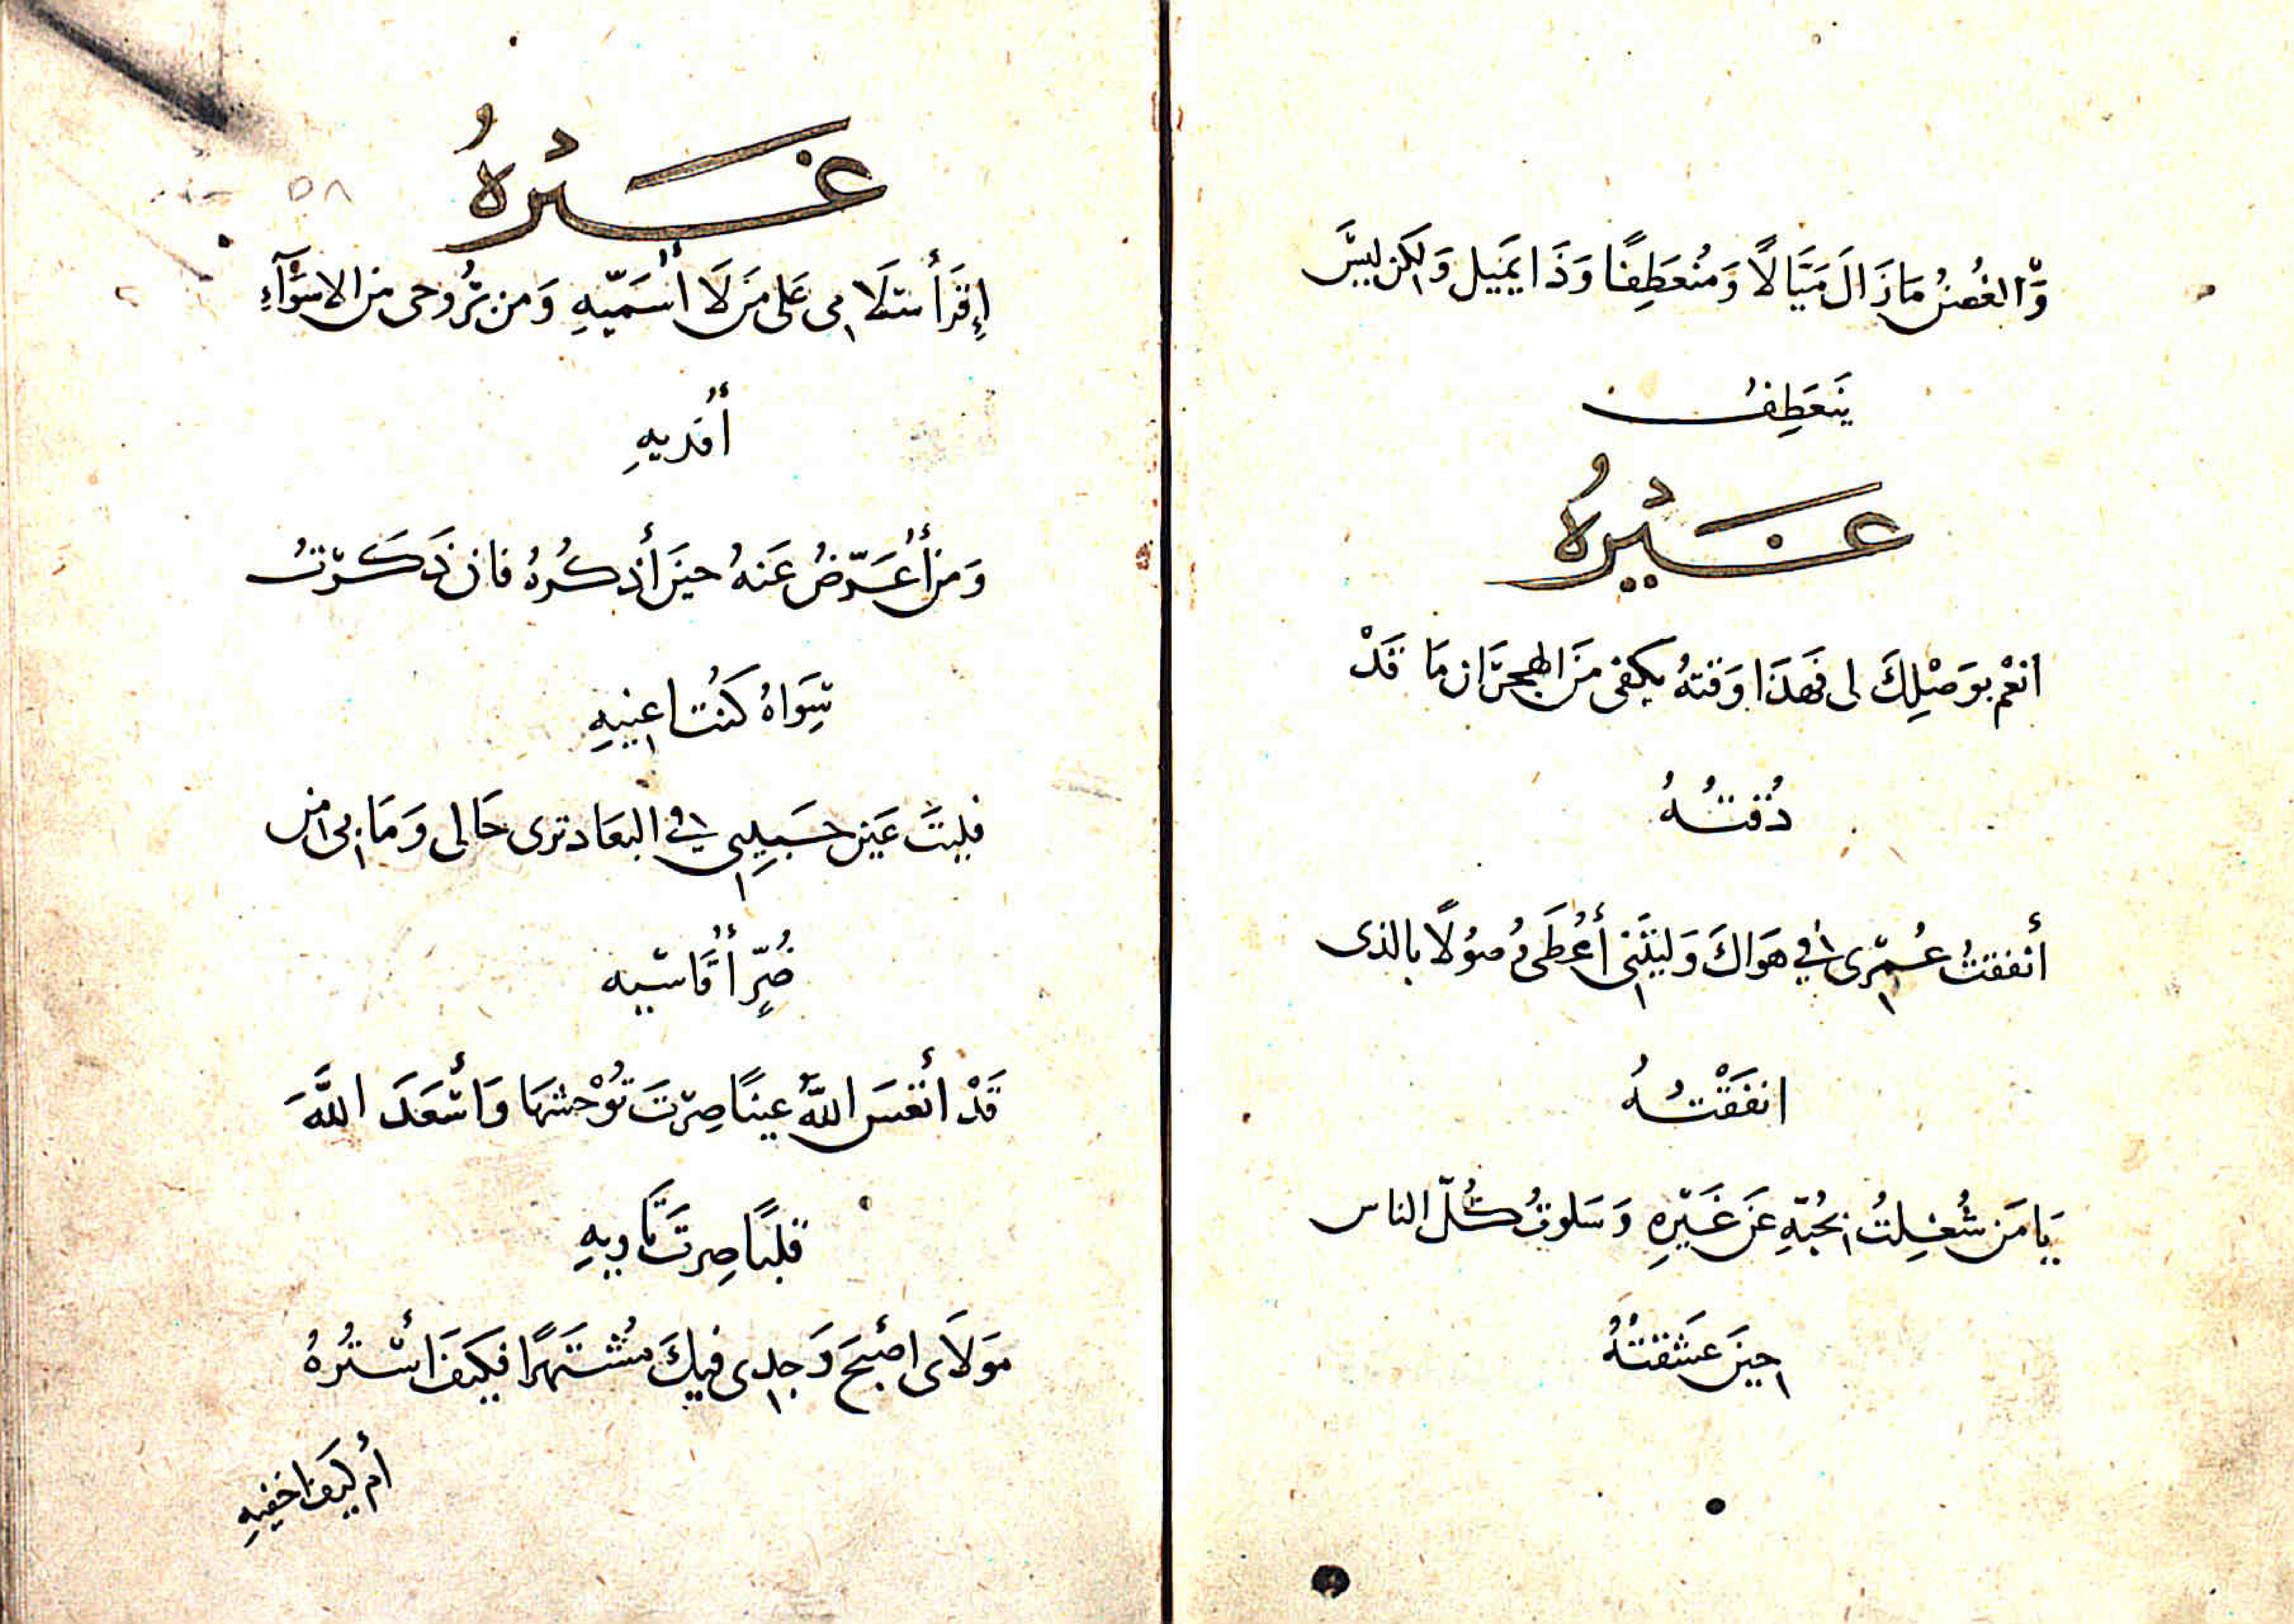 وَّالغُصنُ مَا زَالَ مَيَّالًا وَمُنعَطِفًا وَذَا يَميل وَلكن لَيسَ
يَنعَطِفُ
غَيْرُهُ
انعْم بوَصْلِكَ لى فَهذَا وَقتهُ يكفى مَن الهجرَان مَا قَدْ
ذُقتُهُ
أنفقتُ عُمْرى في هَوَاكَ وَليتَنى أُعْطَى وُصُولًا بالذى
انفَقْتُهُ
يَا مَن شُغِلتُ بحُبّهِ عَن غَيْرِهِ وَسَلوتُ كُلّ الناس
حينَ عَشقتُهُ
غَيْرُهُ
٥٨
إِقرَأ سَلَامى عَلى مَن لَا أُسَمّيهِ وَمن برُوحى من الاسْوَآءِ
أُفديهِ
وَمن أُعَرّضُ عَنهُ حينَ أذكُرُهُ فان ذَكَرْتُ
سِوَاهُ كُنتُ اعنيهِ
فليتَ عَين حَبيبِى في البعَاد ترى حَالى وَمَا بى من
ضُرٍّ أُقَاسْيه
قَدْ أنعَسَ اللَّهُ عينًا صِرْتَ تُوْحشهَا وَأسْعَدَ اللَّهَ
قلبًا صِرتَ تَاويهِ
مَولَاى اصْبحَ وَجدِى فيكَ مُشتَهرًا فكيَفَ أسْترُهُ
أم كيَف اخفيهِ